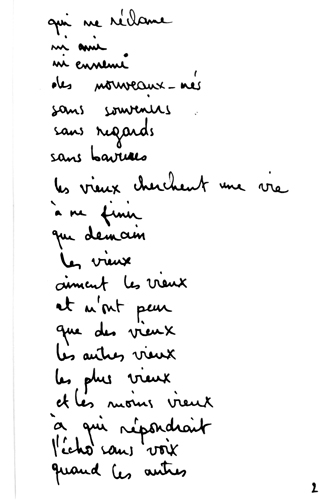 qui ne réclame
ni ami
ni ennemi
des nouveaux-nés
sans souvenirs
sans regards
sans barrières
les vieux cherchent une vie
à ne finir
que demain
les vieux
aiment les vieux
et n'ont peur
que des vieux
les autres vieux
les plus vieux
et les moins vieux
à qui répondrait
l'écho sans voix
quand les autres
2